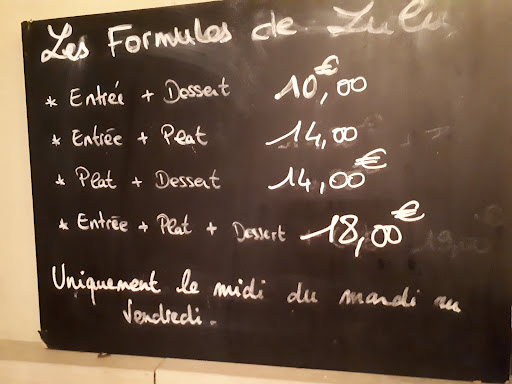 Les Formules de Lulu
* Entrée + Dessert 10,00€
* Entrée + Plat 14,00
* Plat + Dessert 14,00€
* Entrée + Plat + Dessert 18,00€
Uniquement le midi du mardi au
Vendredi.